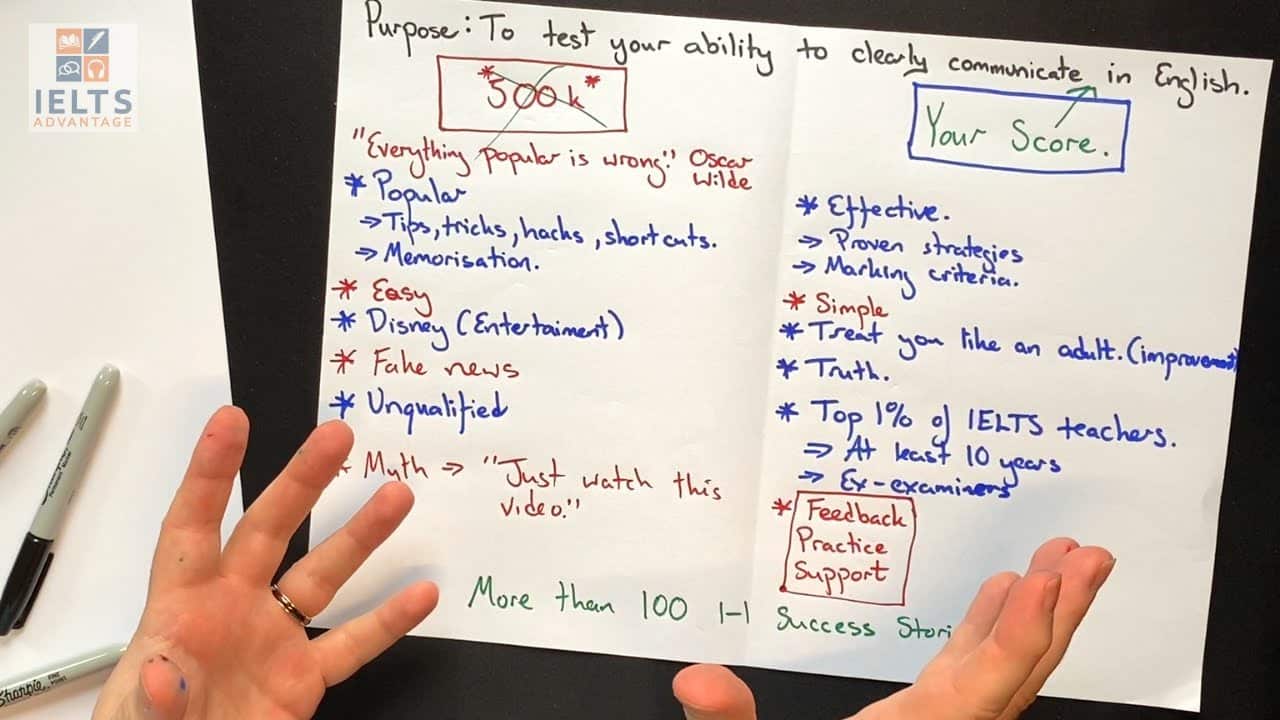 IELTS
ADVANTAGE
Purpose: To test your ability to clearly communicate in English.
*500k*
"Everything popular is wrong." Oscar
Wilde
* Popular
→ Tips, tricks, hacks, short cuts.
→ Memorisation.
* Easy
* Disney (Entertaiment)
* Fake news
* Unqualified
* Myth → "Just watch this
video."
Your Score.
* Effective.
→ Proven strategies
→ Marking criteria.
* Simple
* Treat you like an adult. (improvement)
* Truth.
* Top 1% of IELTS teachers.
→ At least 10 years
→ Ex-examiners
* Feedback
Practice
Support
More than 100 1-1 Success Stori
Sharpie